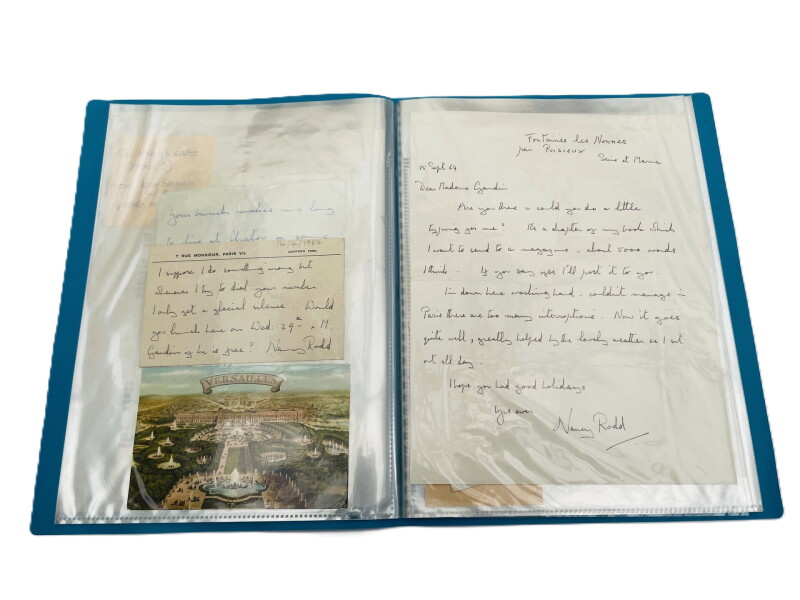 your lunch makes me long
to live at Chatou
14/7/1964
7 RUE MONSIEUR, PARIS VII.
I suppose I do something wrong but
whenever I try to dial your number
I only get a glacial silence. Would
you lunch here on Wed: 29th & M.
Gandin if he is free? Nancy Rodd
VERSAILLES
Fontaines les Nonnes
par Puisieux
Seine et Marne
15 Sept 64
Dear Madame Gandin
Are you there & could you do a little
typing for me? It's a chapter of my book which
I want to send to a magazine - about 5000 words
I think. If you say yes I'll post it to you.
I'm down here working hard - couldn't manage in
Paris there are too many interruptions. Now it goes
quite well, greatly helped by the lovely weather as I sit
out all day.
I hope you had good holidays
Yrs ever
Nancy Rodd